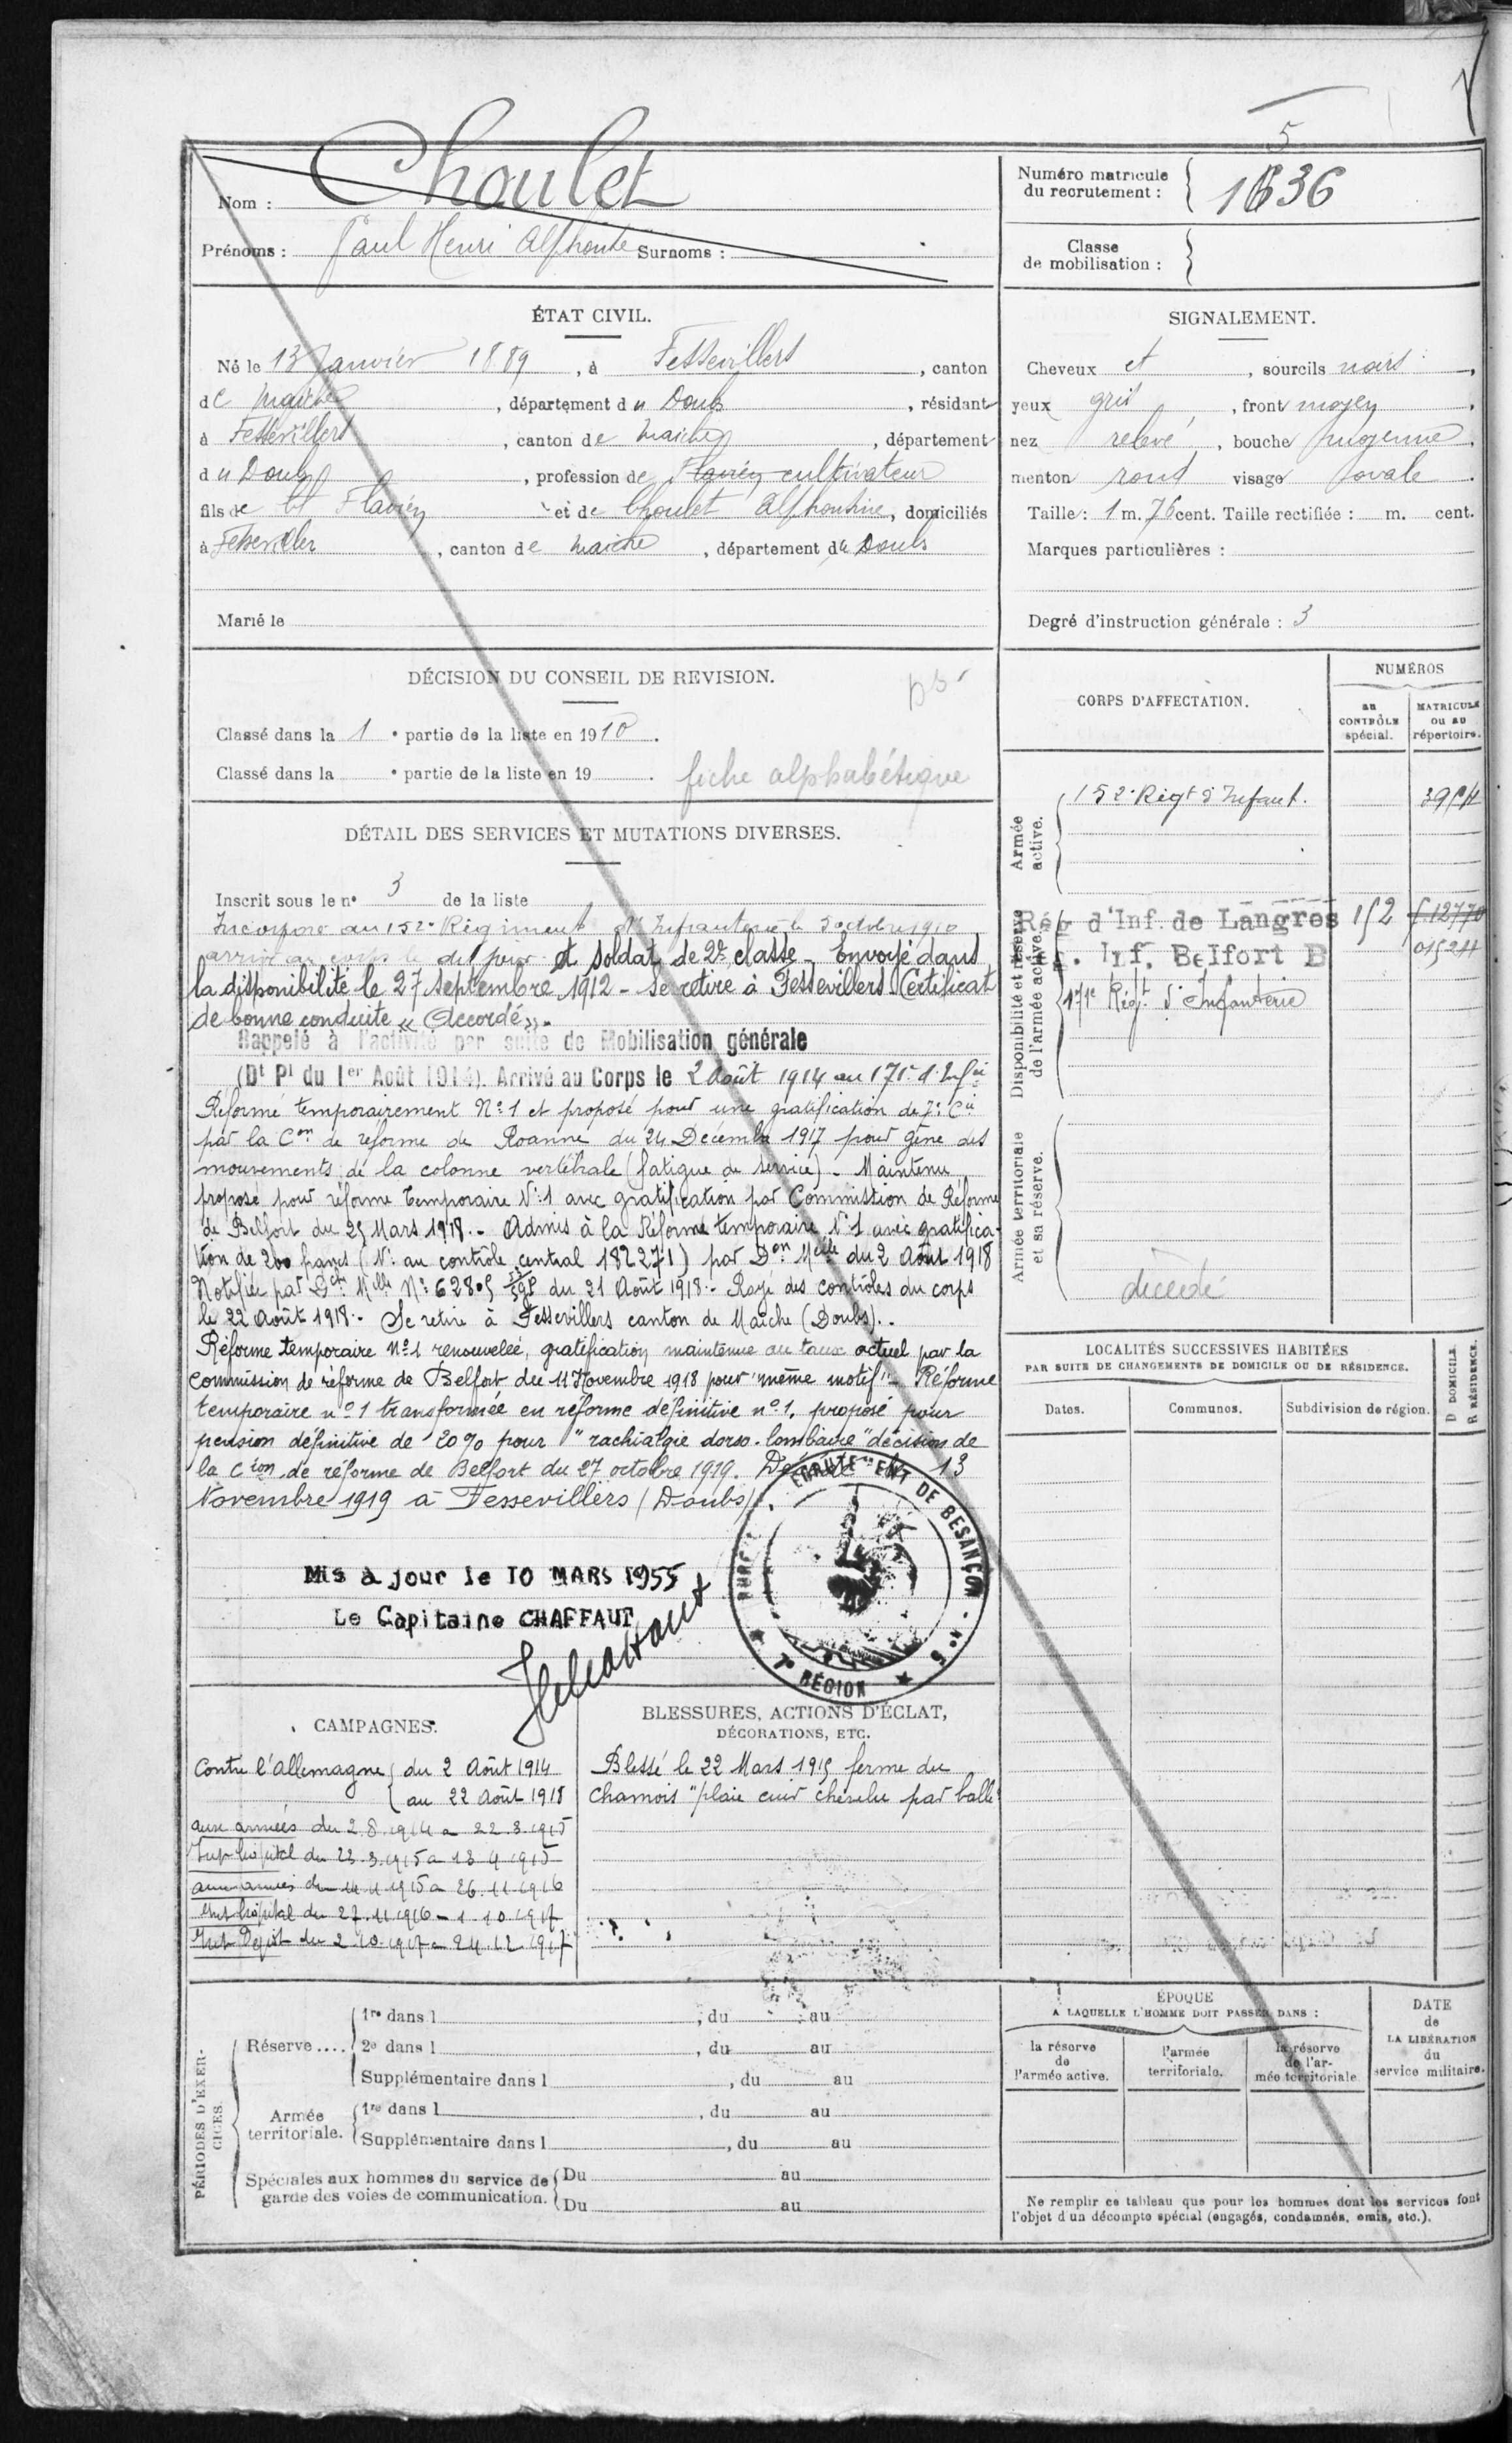 5
Nom : Choulet
Prénoms : Paul Henri Alphonse Surnoms :
Numéro matricule
du recrutement : 1636
Classe
de mobilisation :
ÉTAT CIVIL.
Né le 13 Janvier 1889, à Fessevillers, canton
de Maiche, département du Doubs, résidant
à Fessevillers, canton de Maiche, département
du Doubs, profession de Flavien cultivateur
fils de Flavien et de Choulet Alphonsine, domiciliés
à Fessevillers, canton de Maiche, département du Doubs
Marié le
SIGNALEMENT.
Cheveux et, sourcils noirs,
yeux gris, front moyen,
nez relevé, bouche moyenne,
menton rond visage ovale.
Taille : 1 m. 76 cent. Taille rectifiée : m. cent.
Marques particulières :
Degré d'instruction générale : 3
DÉCISION DU CONSEIL DE REVISION.
Classé dans la 1 e partie de la liste en 1910.
Classé dans la e partie de la liste en 19 . fiche alphabétique
DÉTAIL DES SERVICES ET MUTATIONS DIVERSES.
Inscrit sous le n° 3 de la liste
Incorporé au 152e Régiment d'Infanterie le 3 octobre 1910
arrivé au corps le dit jour et soldat de 2e classe - Envoyé dans
la disponibilité le 27 Septembre 1912 - Se retire à Fessevillers Certificat
de bonne conduite « Accordé ».
Rappelé à l'activité par suite de Mobilisation générale
(Dt Pl du 1er Août 1914). Arrivé au Corps le 2 Août 1914 au 171e d'Infie
Réformé temporairement N°1 et proposé pour une gratification de 7e Cie
par la Con de réforme de Roanne du 24 Décembre 1917 pour gêne des
mouvements de la colonne vertébrale (fatigue du service) - Maintenu
proposé pour réforme temporaire N°1 avec gratification par Commission de Réforme
de Belfort du 25 Mars 1918. - Admis à la Réforme temporaire N°1 avec gratifica-
tion de 200 francs (N° au contrôle central 182271) par Don Mlle du 2 Août 1918
Notifiée par Mlle N° 62805 du 21 Août 1918 - Rayé des contrôles du corps
le 22 Août 1918 - Se retire à Fessevillers canton de Maiche (Doubs). -
Réforme temporaire N°1 renouvelée, gratification maintenue au taux actuel par la
commission de réforme de Belfort du 11 Novembre 1918 pour "même motif" - Réforme
temporaire n°1 transformée en réforme définitive n°1. proposé pour
pension définitive de 20% pour "rachialgie dorso-lombaire" décision de
la Cion de réforme de Belfort du 27 octobre 1919. Décédé le 13
Novembre 1919 à Fessevillers (Doubs).
Mis à jour le 10 MARS 1955
Le Capitaine CHAFFAUT
RECRUTEMENT DE BESANÇON
7e RÉGION
CORPS D'AFFECTATION.
NUMÉROS
au
CONTRÔLE
spécial.
MATRICULE
ou au
répertoire.
Armée
active.
152e Régt d'Infant.
Disponibilité et réserve
de l'armée active.
Rég d'Inf. de Langres 152 12770
Inf. Belfort B 01524
171e Régt d'Infanterie
Armée territoriale
et sa réserve.
décédé
LOCALITÉS SUCCESSIVES HABITÉES
PAR SUITE DE CHANGEMENTS DE DOMICILE OU DE RÉSIDENCE.
Dates. Communes. Subdivision de région.
D DOMICILE.
R RÉSIDENCE.
CAMPAGNES.
Contre l'Allemagne du 2 Août 1914
au 22 Août 1918
aux armées du 2.8.1914 à 22.3.1915
Int hôpital du 23.3.1915 à 13 4 1915
aux armées du 14 4 1915 à 26.11.1916
Int hôpital du 27.11.1916 - 1.10.1917
Int Dépôt du 2.10.1917 à 24.12.1917
BLESSURES, ACTIONS D'ÉCLAT,
DÉCORATIONS, ETC.
Blessé le 22 Mars 1915 ferme du
Chamois "plaie cuir chevelu par balle"
PÉRIODES D'EXER-
CICES.
Réserve....
1re dans l , du au
2e dans l , du au
Supplémentaire dans l , du au
Armée
territoriale.
1re dans l , du au
Supplémentaire dans l , du au
Spéciales aux hommes du service de
garde des voies de communication.
Du au
Du au
ÉPOQUE
A LAQUELLE L'HOMME DOIT PASSER DANS :
la réserve
de
l'armée active.
l'armée
territoriale.
la réserve
de l'ar-
mée territoriale
DATE
de
LA LIBÉRATION
du
service militaire.
Ne remplir ce tableau que pour les hommes dont les services font
l'objet d'un décompte spécial (engagés, condamnés, omis, etc.).